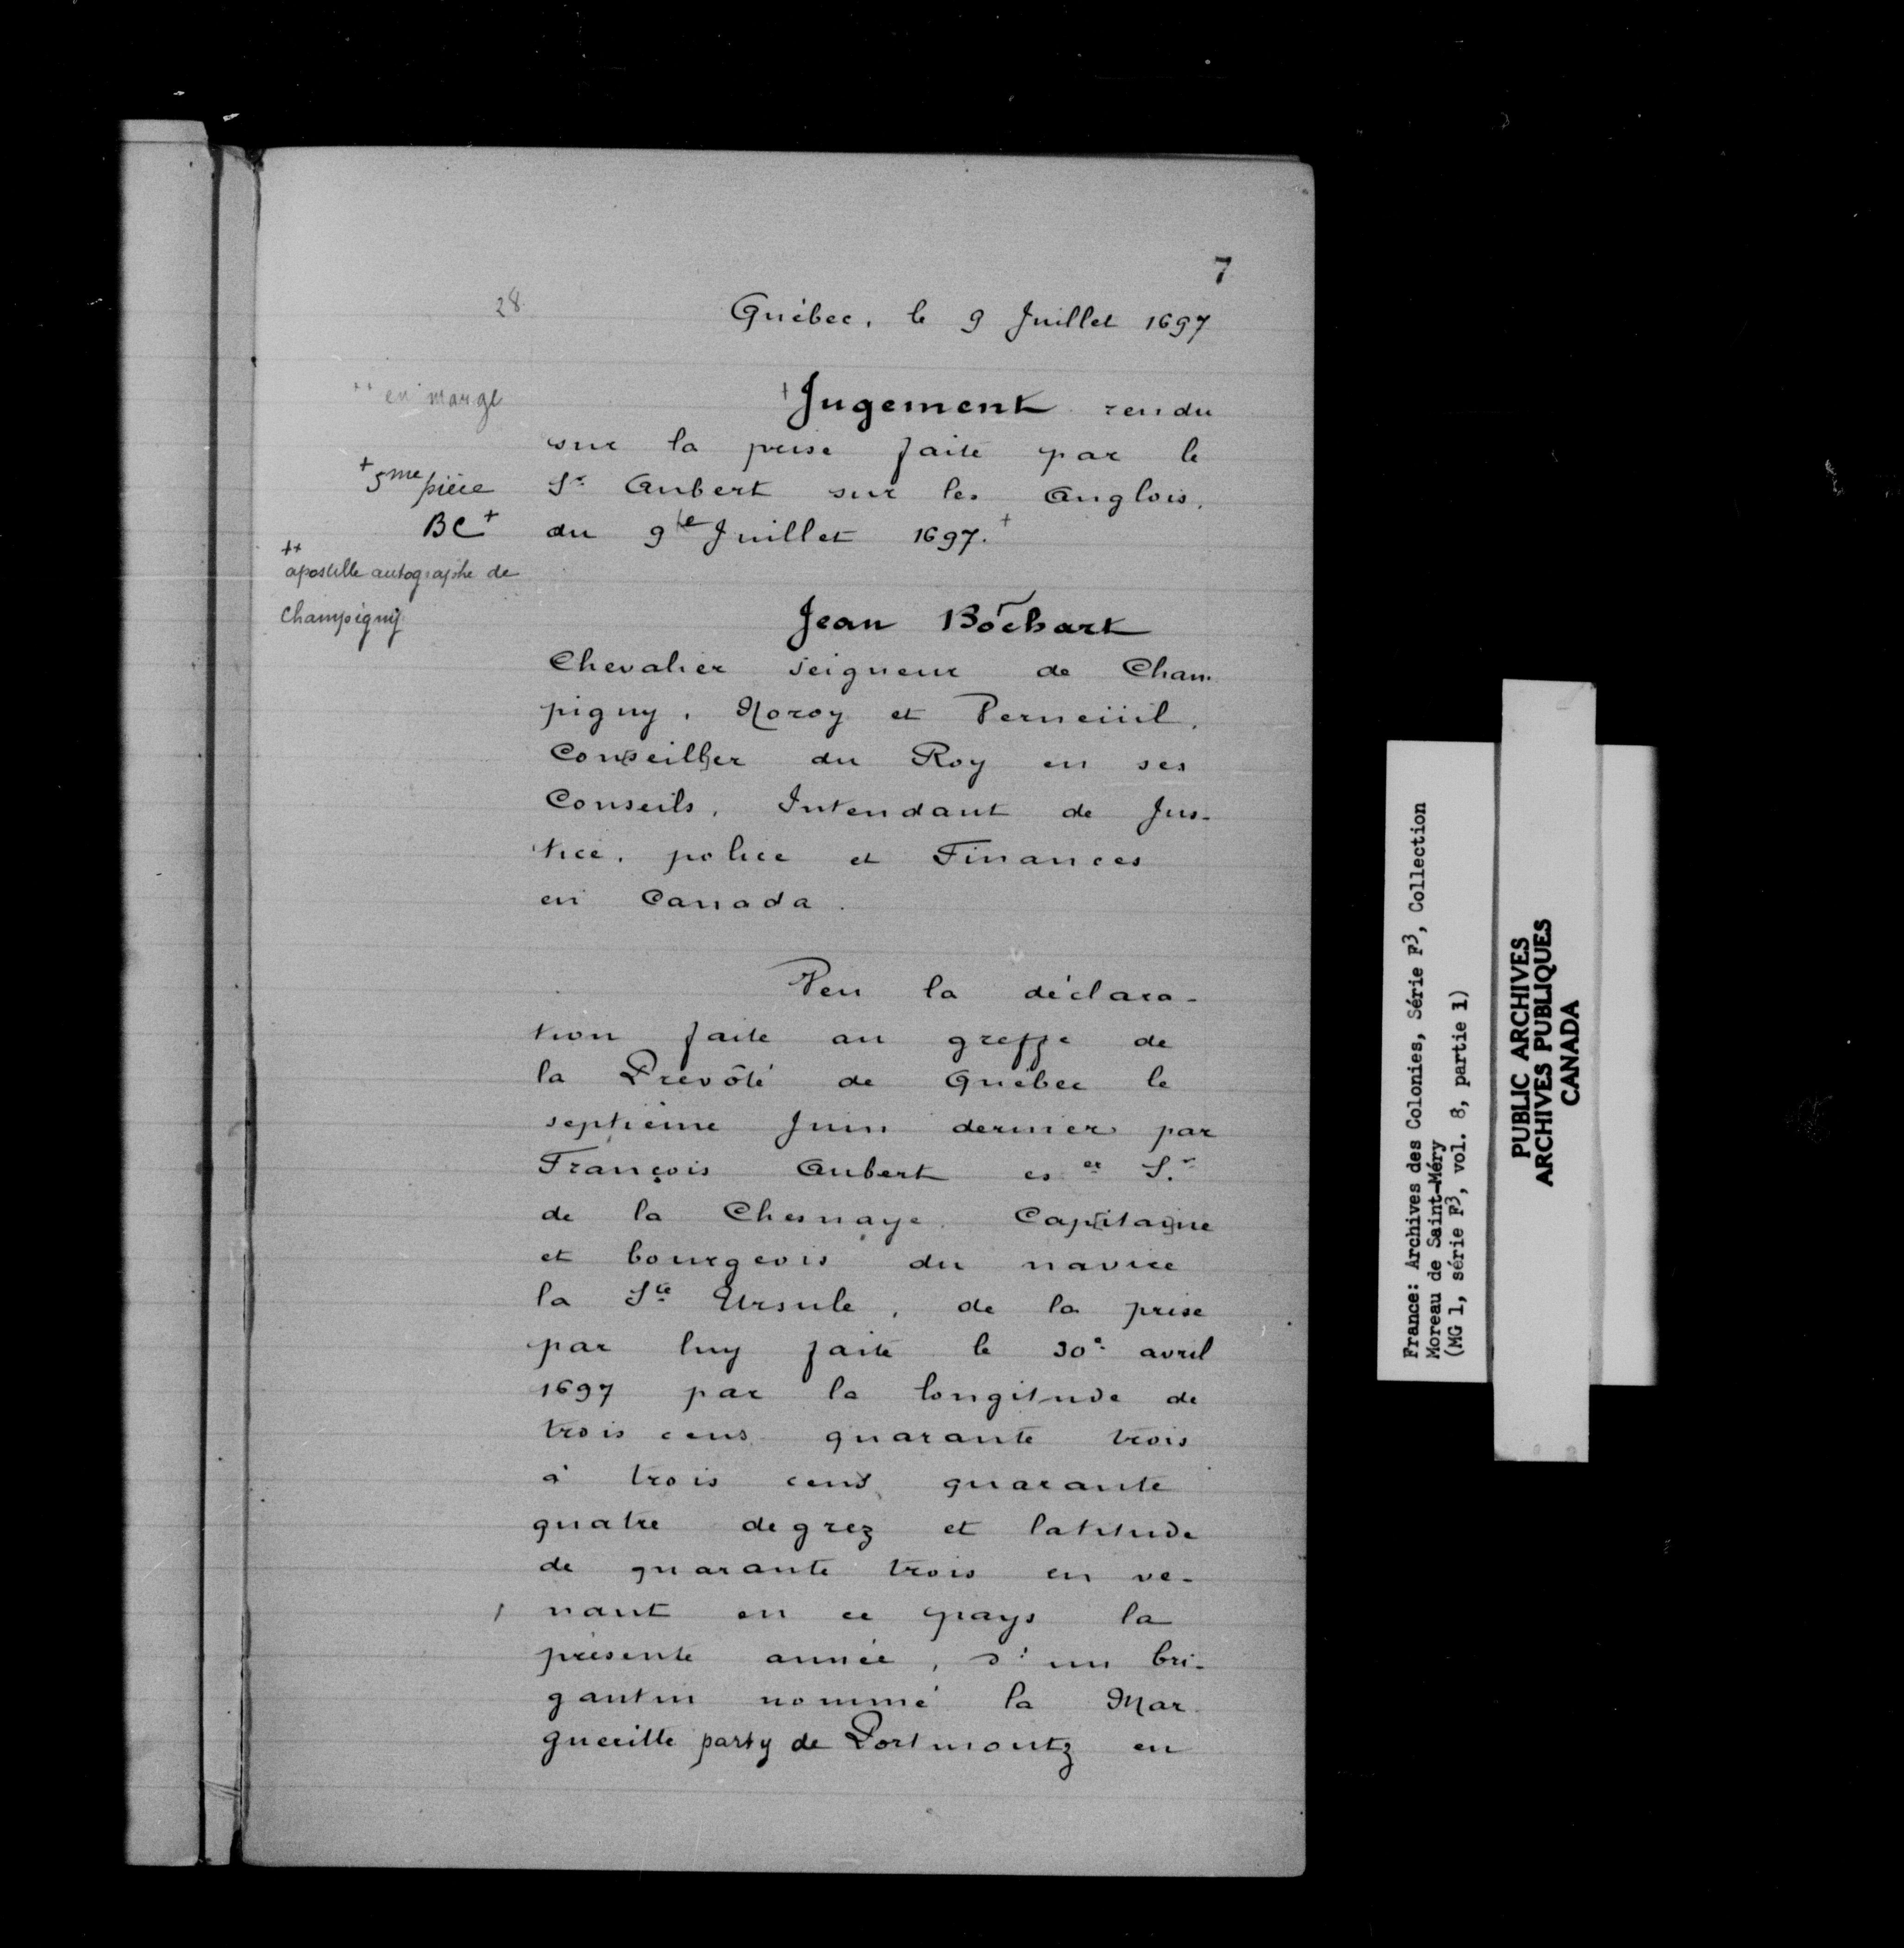 7
28
Québec, le 9 Juillet 1697
++ en marge
+ Jugement rendu
sur la prise faite par le
+ 5me pièce
Sr Aubert sur les Anglois,
BC +
du 9 le Juillet 1697. +
++
apostille autographe de
Champigny
Jean Bochart
Chevalier seigneur de Cham
pigny, Noroy et Verneüil,
Conseiller du Roy en ses
Conseils, Intendant de Jus-
tice, police et Finances
en Canada.
Veu la déclara-
tion faite au greffe de
la Prevôté de Québec le
septième Juin dernier par
François Aubert eser Sr
de la Chesnaye Capitaine
et bourgeois du navire
la Ste Ursule, de la prise
par luy faite le 30e avril
1697 par la longitude de
trois cens quarante trois
à trois cens quarante
quatre degrez et latitude
de quarante trois en ve-
nant en ce pays la
présente année, d'un bri-
gantin nommé la Mar
gueritte party de Portmoutz en
France: Archives des Colonies, Série F3, Collection
Moreau de Saint-Méry
(MG 1, série F3, vol. 8, partie 1)
PUBLIC ARCHIVES
ARCHIVES PUBLIQUES
CANADA